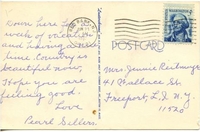 Down here for
week of vacation
and having a nice
time. Country is
beautiful now.
Hope you are
feeling good.
Love
Pearl Sellers.
POSTCARD
Mrs. Jennie
41 Wallace St.
Freeport, L. I. N. Y.
11520